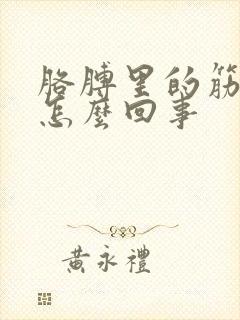 胳膊里的筋
怎麼回事
黃永禮